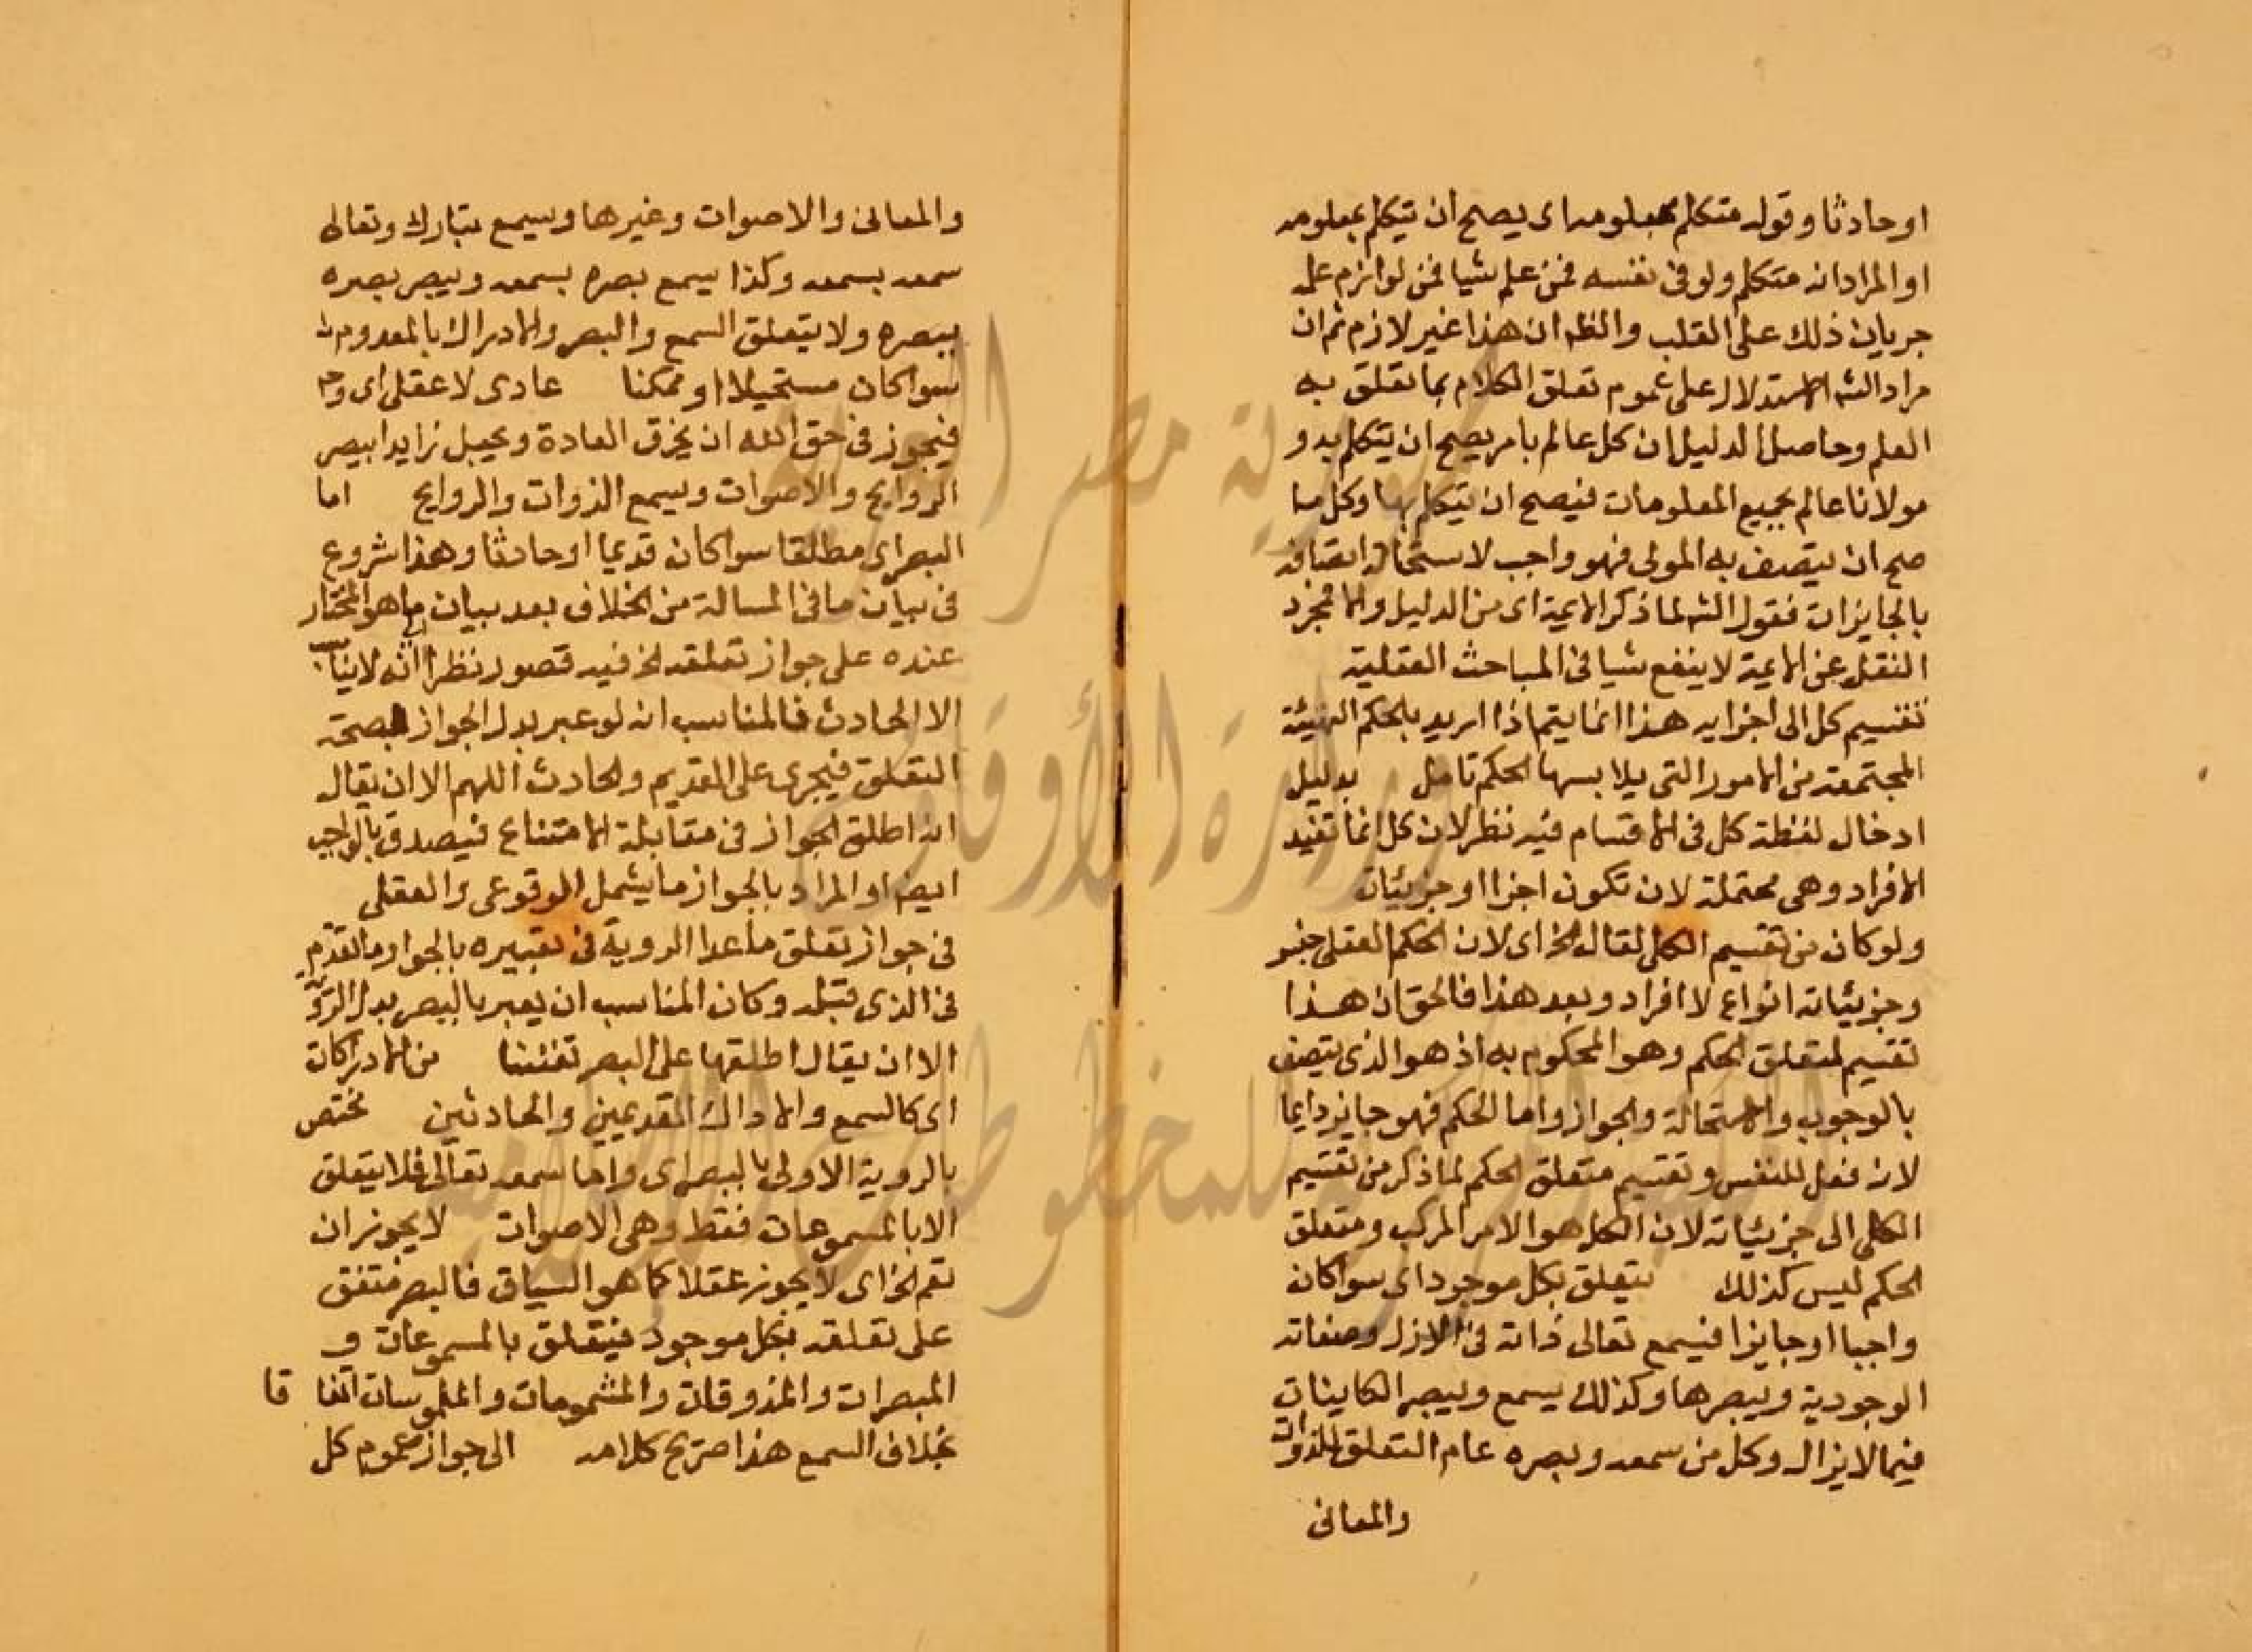 اوحادثا وقوله متكلم بمعلومه اى يصح ان يتكلم بمعلومه
او المراد انه متكلم ولو فى نفسه فمن علم شيا فمن لوازم علمه
جريان ذلك على القلب والظ ان هذا غير لازم ثم ان
مراد الشه الاستدلال على عموم تعلق الكلام بما تعلق به
العلم وحاصل الدليل ان كل عالم بامر يصح ان يتكلم به و
مولانا عالم بجميع المعلومات فيصح ان يتكلم بها وكل ما
صح ان يتصف به المولى فهو واجب لاستحالة اتصافه
بالجايزات فقول الشه لما ذكر الايمة اى من الدليل والا فمجرد
النقل عن الايمة لا ينفع شيا فى المباحث العقلية
تقسيم كل الى اجزايه هذا انما يتم اذا اريد بالحكم الهيئة
المجتمعة من الامور التى يلابسها الحكم تامل بدليل
ادخال لفظة كل فى الاقسام فيه نظر لان كل انما تفيد
الافراد وهى محتملة لان تكون اجزا اوجزئيات
ولو كان من تقسيم الكلى لقال الخ اى لان الحكم العقلى جنس
وجزئياته انواع لا افراد وبعد هذا فالحق ان هذا
تقسيم لمتعلق الحكم وهو المحكوم به اذ هو الذى يتصف
بالوجوب والاستحالة والجواز واما الحكم فهو جايز دايما
لانه فعل للنفس وتقسيم متعلق الحكم لما ذكر من تقسيم
الكلى الى جزئياته لان الكل هو الامر المركب ومتعلق
الحكم ليس كذلك يتعلق بكل موجود اى سوا كان
واجبا اوجايزا فيسمع تعالى ذاته فى الازل وصفاته
الوجودية ويبصرها وكذلك يسمع ويبصر الكاينات
فيما لايزال وكل من سمعه وبصره عام التعلق للذوات
والمعانى
والمعانى والاصوات وغيرها وسيمع تبارك وتعالى
سمعه بسمعه وكذا يسمع بصره بسمعه ويبصر بصره
ببصره ولا يتعلق السمع والبصر والادراك بالمعدوم
سوا كان مستحيلا او ممكنا عادى لا عقلى اى وح
فيجوز فى حق الله ان يخرق العادة ويجعل زايدا يبصر
الروايح والاصوات ويسمع الذوات والروايح اما
البصر اى مطلقا سوا كان قديما اوحادثا وهذا شروع
فى بيان ما فى المسالة من الخلاف بعد بيان ما هو المختار
عنده على جواز تعلقه الخ فيه قصور نظرا انه لايناسب
الا الحادث فالمناسب انه لو عبر بدل الجواز بصحة
التعلق فيجرى على القديم والحادث اللهم الا ان يقال
انه اطلق الجواز فى مقابلة الامتناع فيصدق بالواجب
ايضا او المراد بالجواز ما يشمل الوقوعى والعقلى
فى جواز تعلق ما عدا الروية فى تعبيره بالجواز ما تقدم
فى الذى قبله وكان المناسب ان يعبر بالبصر بدل الروية
الا ان يقال اطلقها على البصر تفننا من الادراكات
اى كالسمع والاداك القديمين والحادثين تختص
بالروية الاولى بالبصر اى واما سمعه تعالى فلا يتعلق
الا بالمسموعات فقط وهى الاصوات لا يجوز ان
تعم الخ اى لا يجوز عقلا كما هو السياق فالبصر متفق
على تعلقه بكل موجود فيتعلق بالمسموعات و
المبصرات والمذوقات والمشمومات والملموسات اتفا قا
بخلاف السمع هذا صريح كلامه الى جواز عموم كل